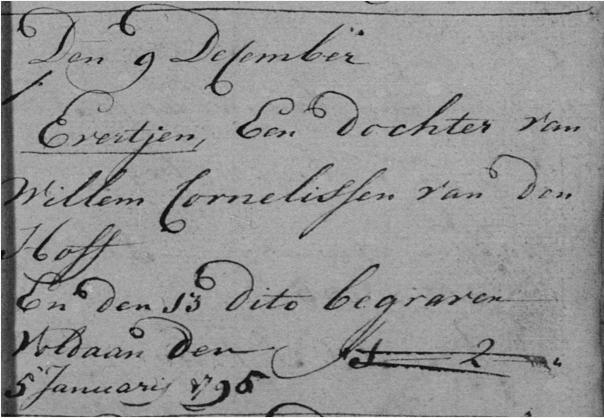 Den 9 Desember
Evertjen, Een dochter van
Willem Cornelissen van den
Hoff
En den 13 dito begraven
Voldaan den f 2
5 Januarij 1795